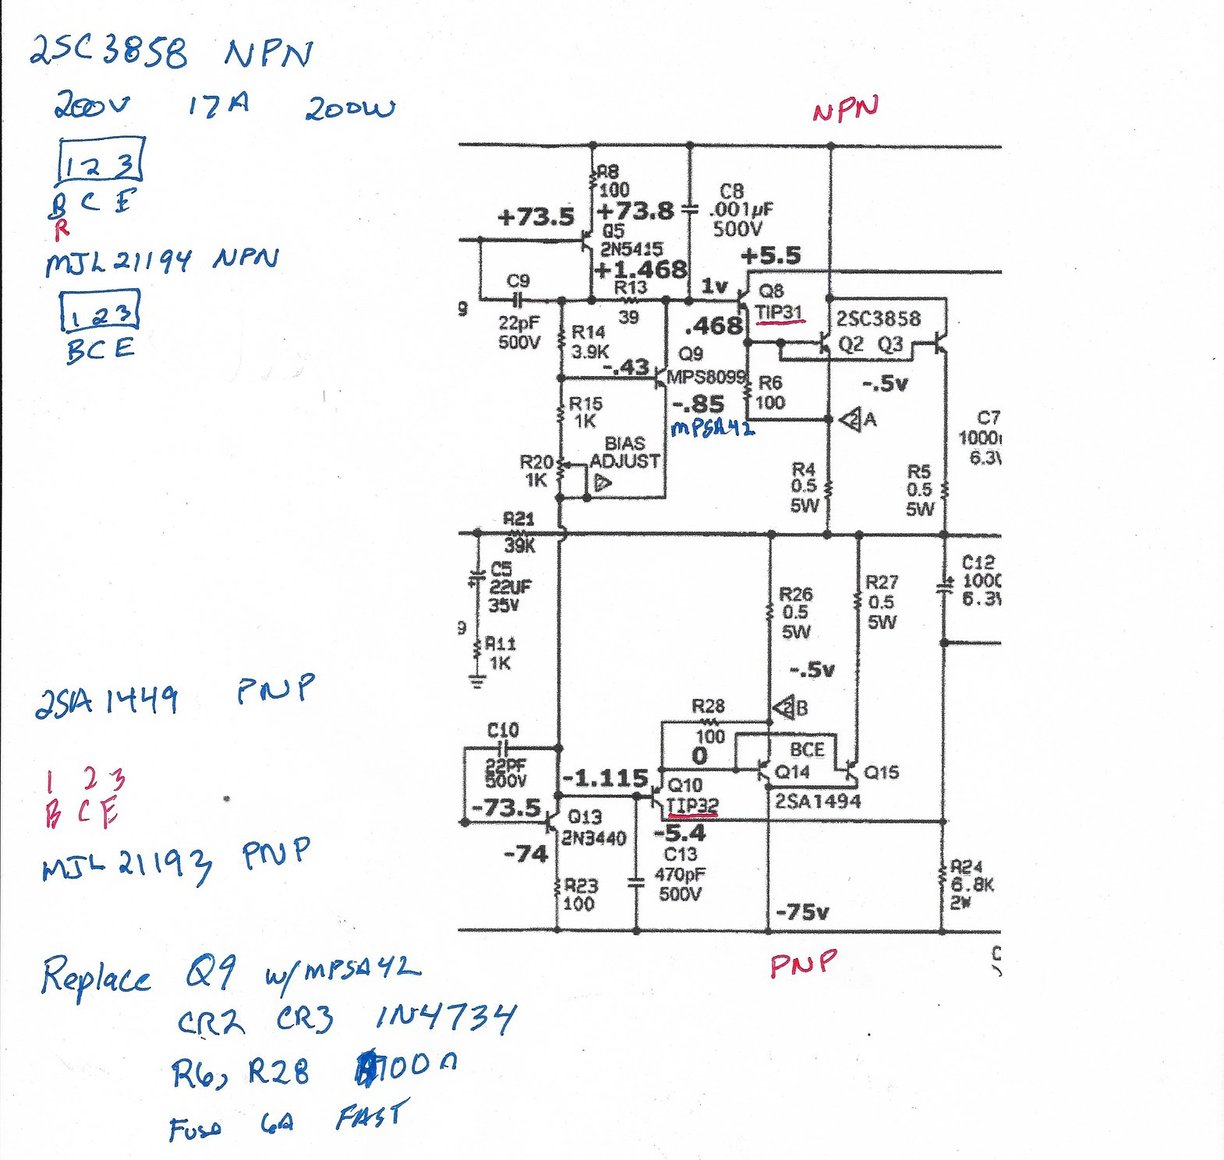 2SC3858 NPN
200V 17A 200W
1 2 3
B C E
R
MJL21194 NPN
1 2 3
B C E
NPN
R8
100
+73.5
+73.8
Q5
2N5415
+1.468
C8
.001µF
500V
+5.5
C9
22pF
500V
9
R13
39
1v
Q8
TIP31
.468
R14
3.9K
-.43
Q9
MPS8099
-.85
MPSA42
2SC3858
Q2 Q3
-.5v
R6
100
2 A
R15
1K
BIAS
ADJUST
R20
1K
R4
0.5
5W
R5
0.5
5W
C7
1000
6.3V
R21
39K
C5
22UF
35V
9
R11
1K
R26
0.5
5W
R27
0.5
5W
C12
1000
6.3V
2SA1449 PNP
1 2 3
B C E
MJL21193 PNP
-.5v
2 B
R28
100
0
BCE
Q14
Q15
2SA1494
C10
22PF
500V
-1.115
Q10
TIP32
-5.4
-73.5
Q13
2N3440
-74
C13
470pF
500V
R23
100
R24
6.8K
2W
-75v
PNP
C
Replace Q9 w/MPSA42
CR2 CR3 1N4734
R6, R28 100Ω
Fuse 6A FAST